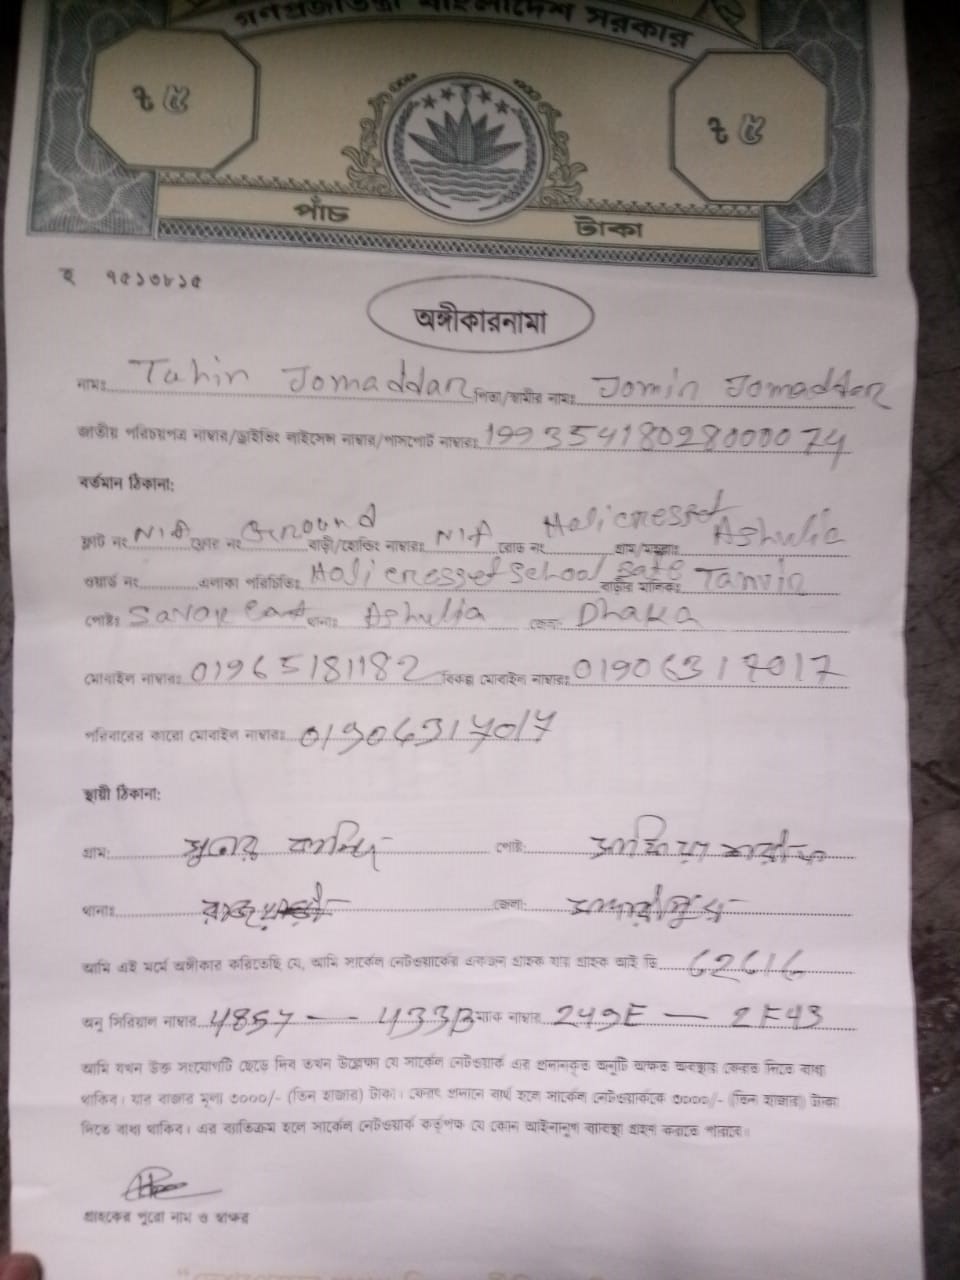 গণপ্রজাতন্ত্রী বাংলাদেশ সরকার
৳ ৫ ৳ ৫
পাঁচ টাকা
ই ৭৫১৩৮১৫
অঙ্গীকারনামা
নামঃ Tuhin Jomaddar পিতা/স্বামীর নামঃ Jomin Jomaddar
জাতীয় পরিচয়পত্র নাম্বার/ড্রাইভিং লাইসেন্স নাম্বার/পাসপোর্ট নাম্বারঃ 19935418028000074
বর্তমান ঠিকানা:
ফ্লাট নং N/A ফ্লোর নং Ground বাড়ী/হোল্ডিং নাম্বারঃ N/A রোড নং Holi cresset গ্রাম/মহল্লাঃ Ashulia
ওয়ার্ড নং এলাকা পরিচিতিঃ Holi cresset school gate বাড়ীর মালিকঃ Tanvir
পোষ্টঃ Savar Cant থানাঃ Ashulia জেলা: Dhaka
মোবাইল নাম্বারঃ 01965181182 বিকল্প মোবাইল নাম্বারঃ 01906317017
পরিবারের কারো মোবাইল নাম্বারঃ 01906317017
স্থায়ী ঠিকানা:
গ্রাম: পোষ্ট:
থানাঃ জেলা:
আমি এই মর্মে অঙ্গীকার করিতেছি যে, আমি সার্কেল নেটওয়ার্কের একজন গ্রাহক যার গ্রাহক আই ডি 62616
অনু সিরিয়াল নাম্বার 4857 -- 433B ম্যাক নাম্বার 249E - 2F43
আমি যখন উক্ত সংযোগটি ছেড়ে দিব তখন উল্লেখ্য যে সার্কেল নেটওয়ার্ক এর প্রদানকৃত অনুটি অক্ষত অবস্থায় ফেরত দিতে বাধ্য
থাকিব। যার বাজার মূল্য ৩০০০/- (তিন হাজার) টাকা। ফেরৎ প্রদানে ব্যর্থ হলে সার্কেল নেটওয়ার্ককে ৩০০০/- (তিন হাজার) টাকা
দিতে বাধ্য থাকিব। এর ব্যতিক্রম হলে সার্কেল নেটওয়ার্ক কর্তৃপক্ষ যে কোন আইনানুগ ব্যবস্থা গ্রহণ করতে পারবে।
গ্রাহকের পুরো নাম ও স্বাক্ষর